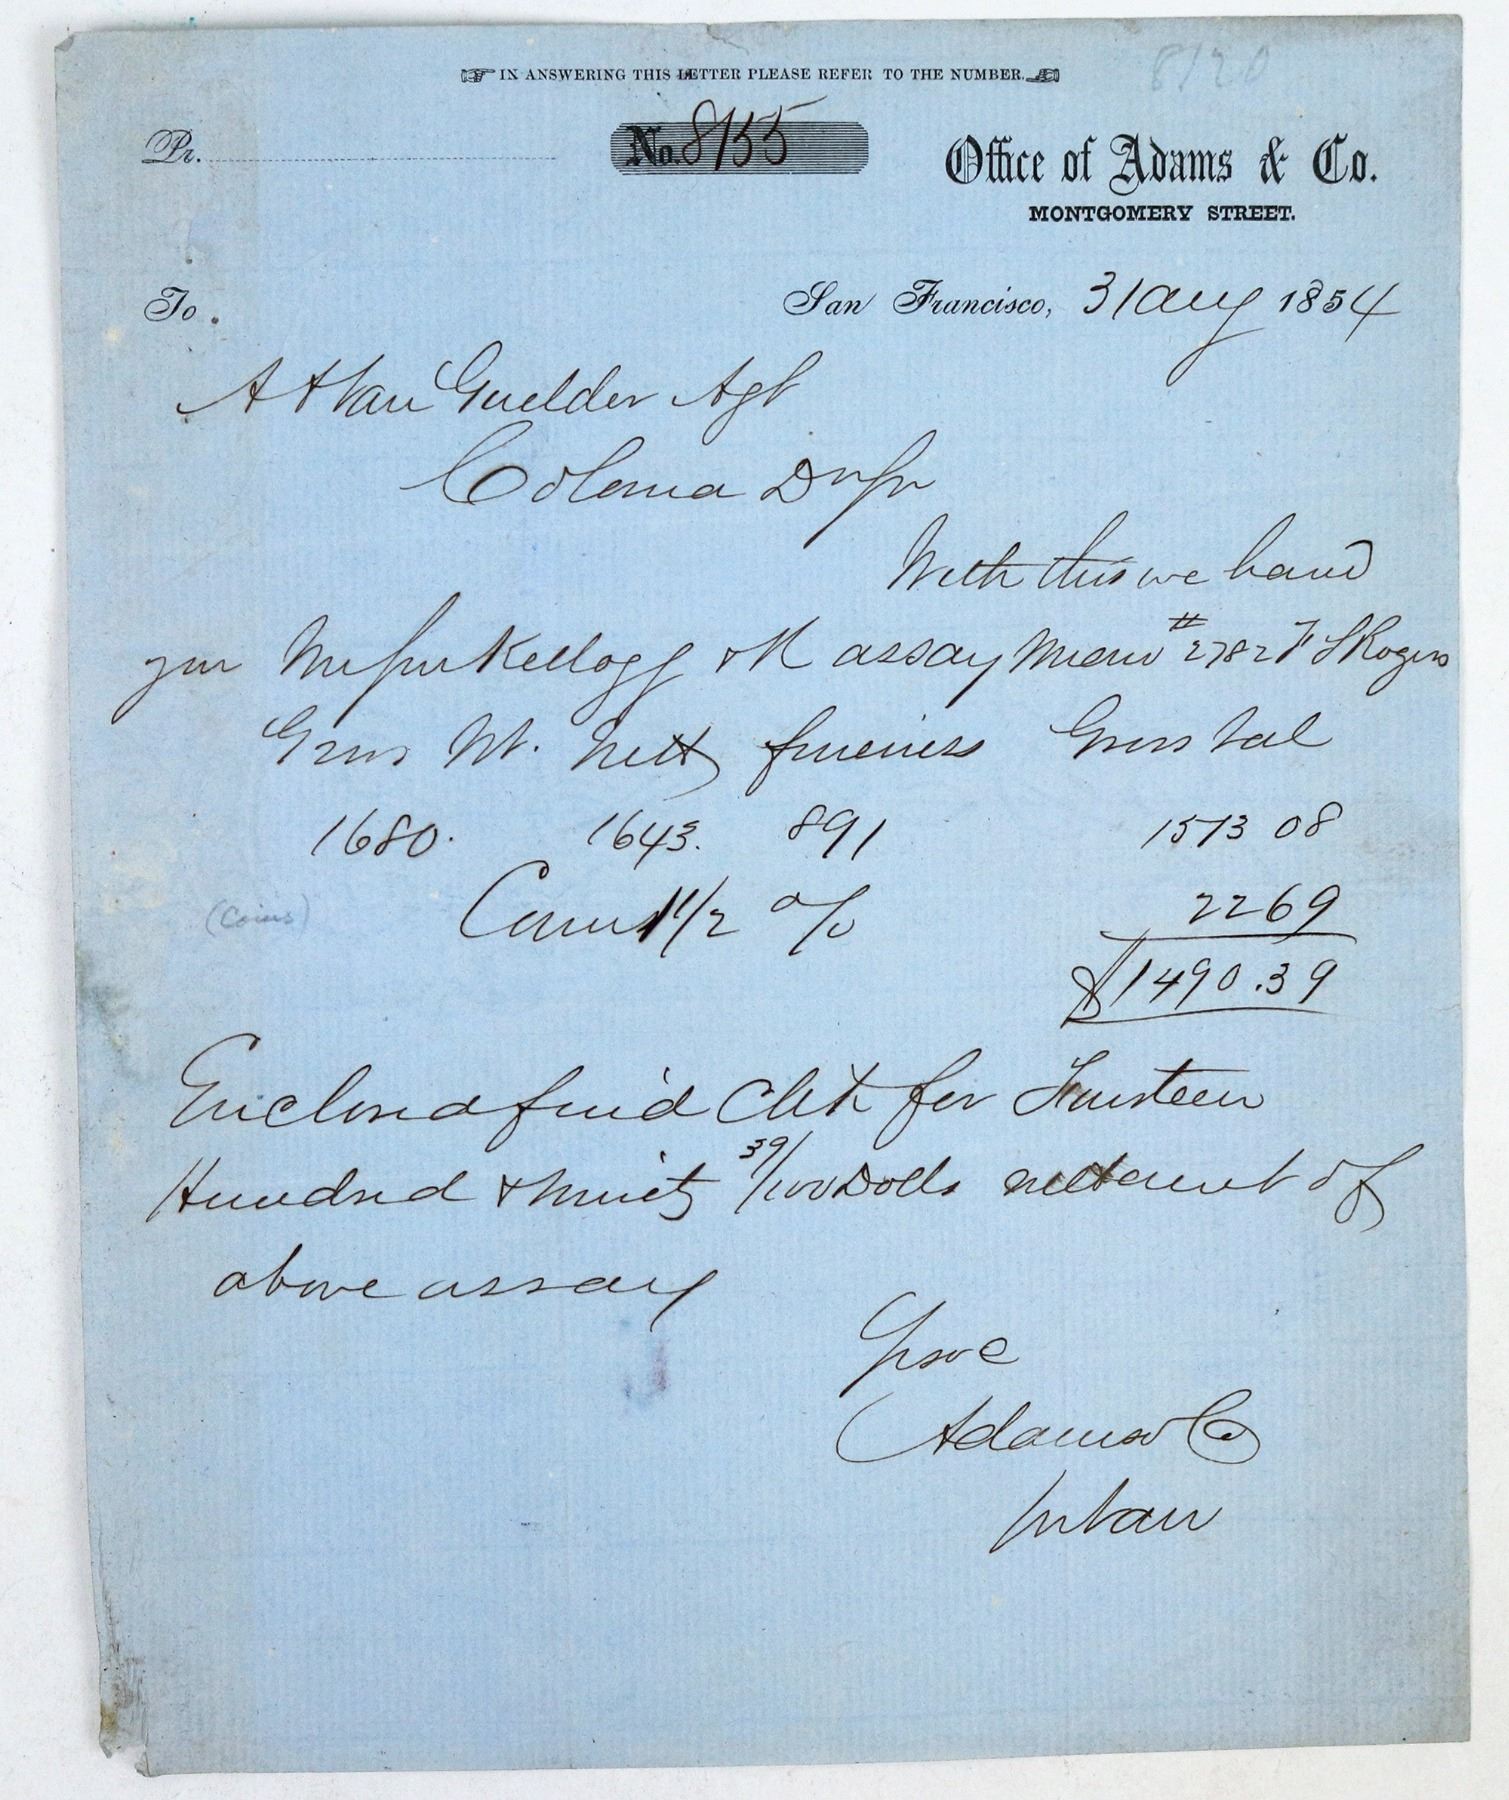 IN ANSWERING THIS LETTER PLEASE REFER TO THE NUMBER.
8120
Pr.
No. 8155
Office of Adams & Co.
MONTGOMERY STREET.
To
San Francisco, 31 Aug 1854
A A Van Guelder Agt
Coloma
With this we hand
you Messrs Kellogg & H assay Memo # 2782 F S Rogers
Gross Wt. Nett fineness Gross Val
1680. 1643. 891 1513 08
(Coins) Coms 1 1/2 % 22 69
$1490.39
Enclosed find Chk for Fourteen
Hundred & Ninety 39/100 Dolls nett amt of
above assay
Adams & Co